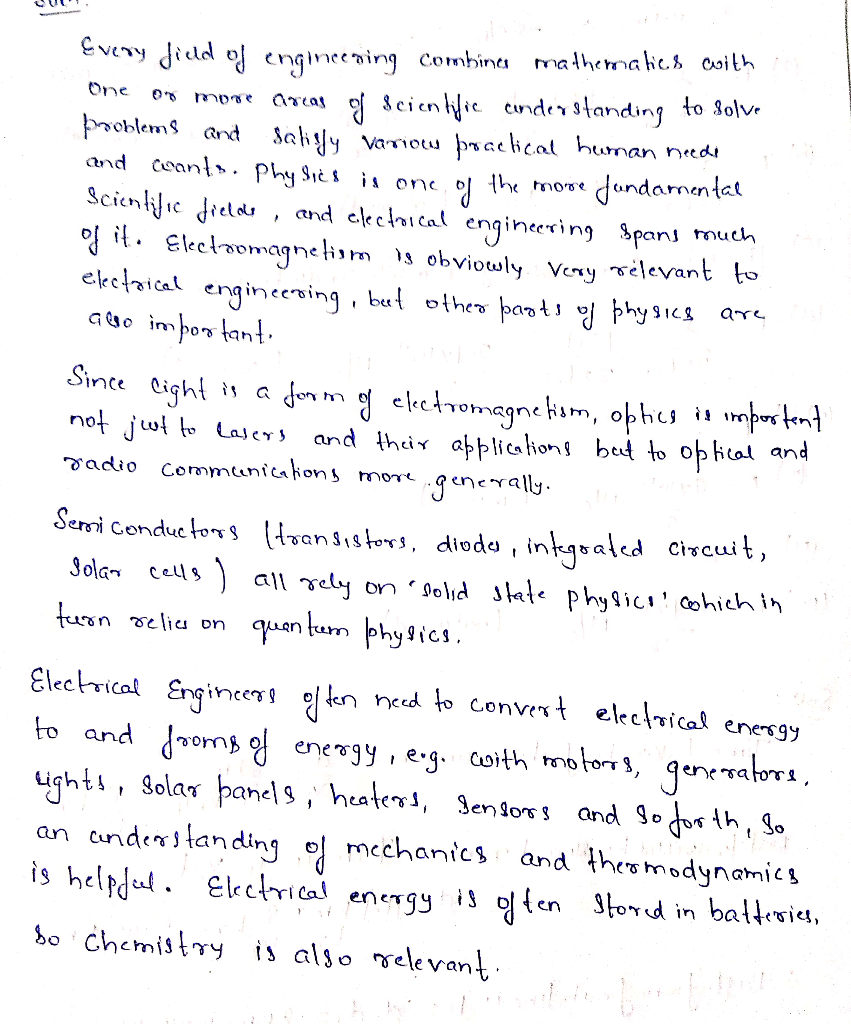 Every field of engineering combines mathematics with
one or more areas of scientific understanding to solve
problems and satisfy various practical human needs
and wants. Physics is one of the more fundamental
Scientific fields, and electrical engineering spans much
of it. Electromagnetism is obviously very relevant to
electrical engineering, but other parts of physics are
also important.
Since light is a form of electromagnetism, optics is importent
not just to lasers and their applications but to optical and
radio communications more generally.
Semiconductors (transistors, diodes, integrated circuit,
solar cells) all rely on 'solid state physics' which in
turn relies on quantum physics.
Electrical Engineers often need to convert electrical energy
to and froms of energy, e.g. with motors, generators,
lights, solar panels, heaters, sensors and so forth, so
an understanding of mechanics and thermodynamics
is helpful. Electrical energy is often stored in batteries,
so chemistry is also relevant.